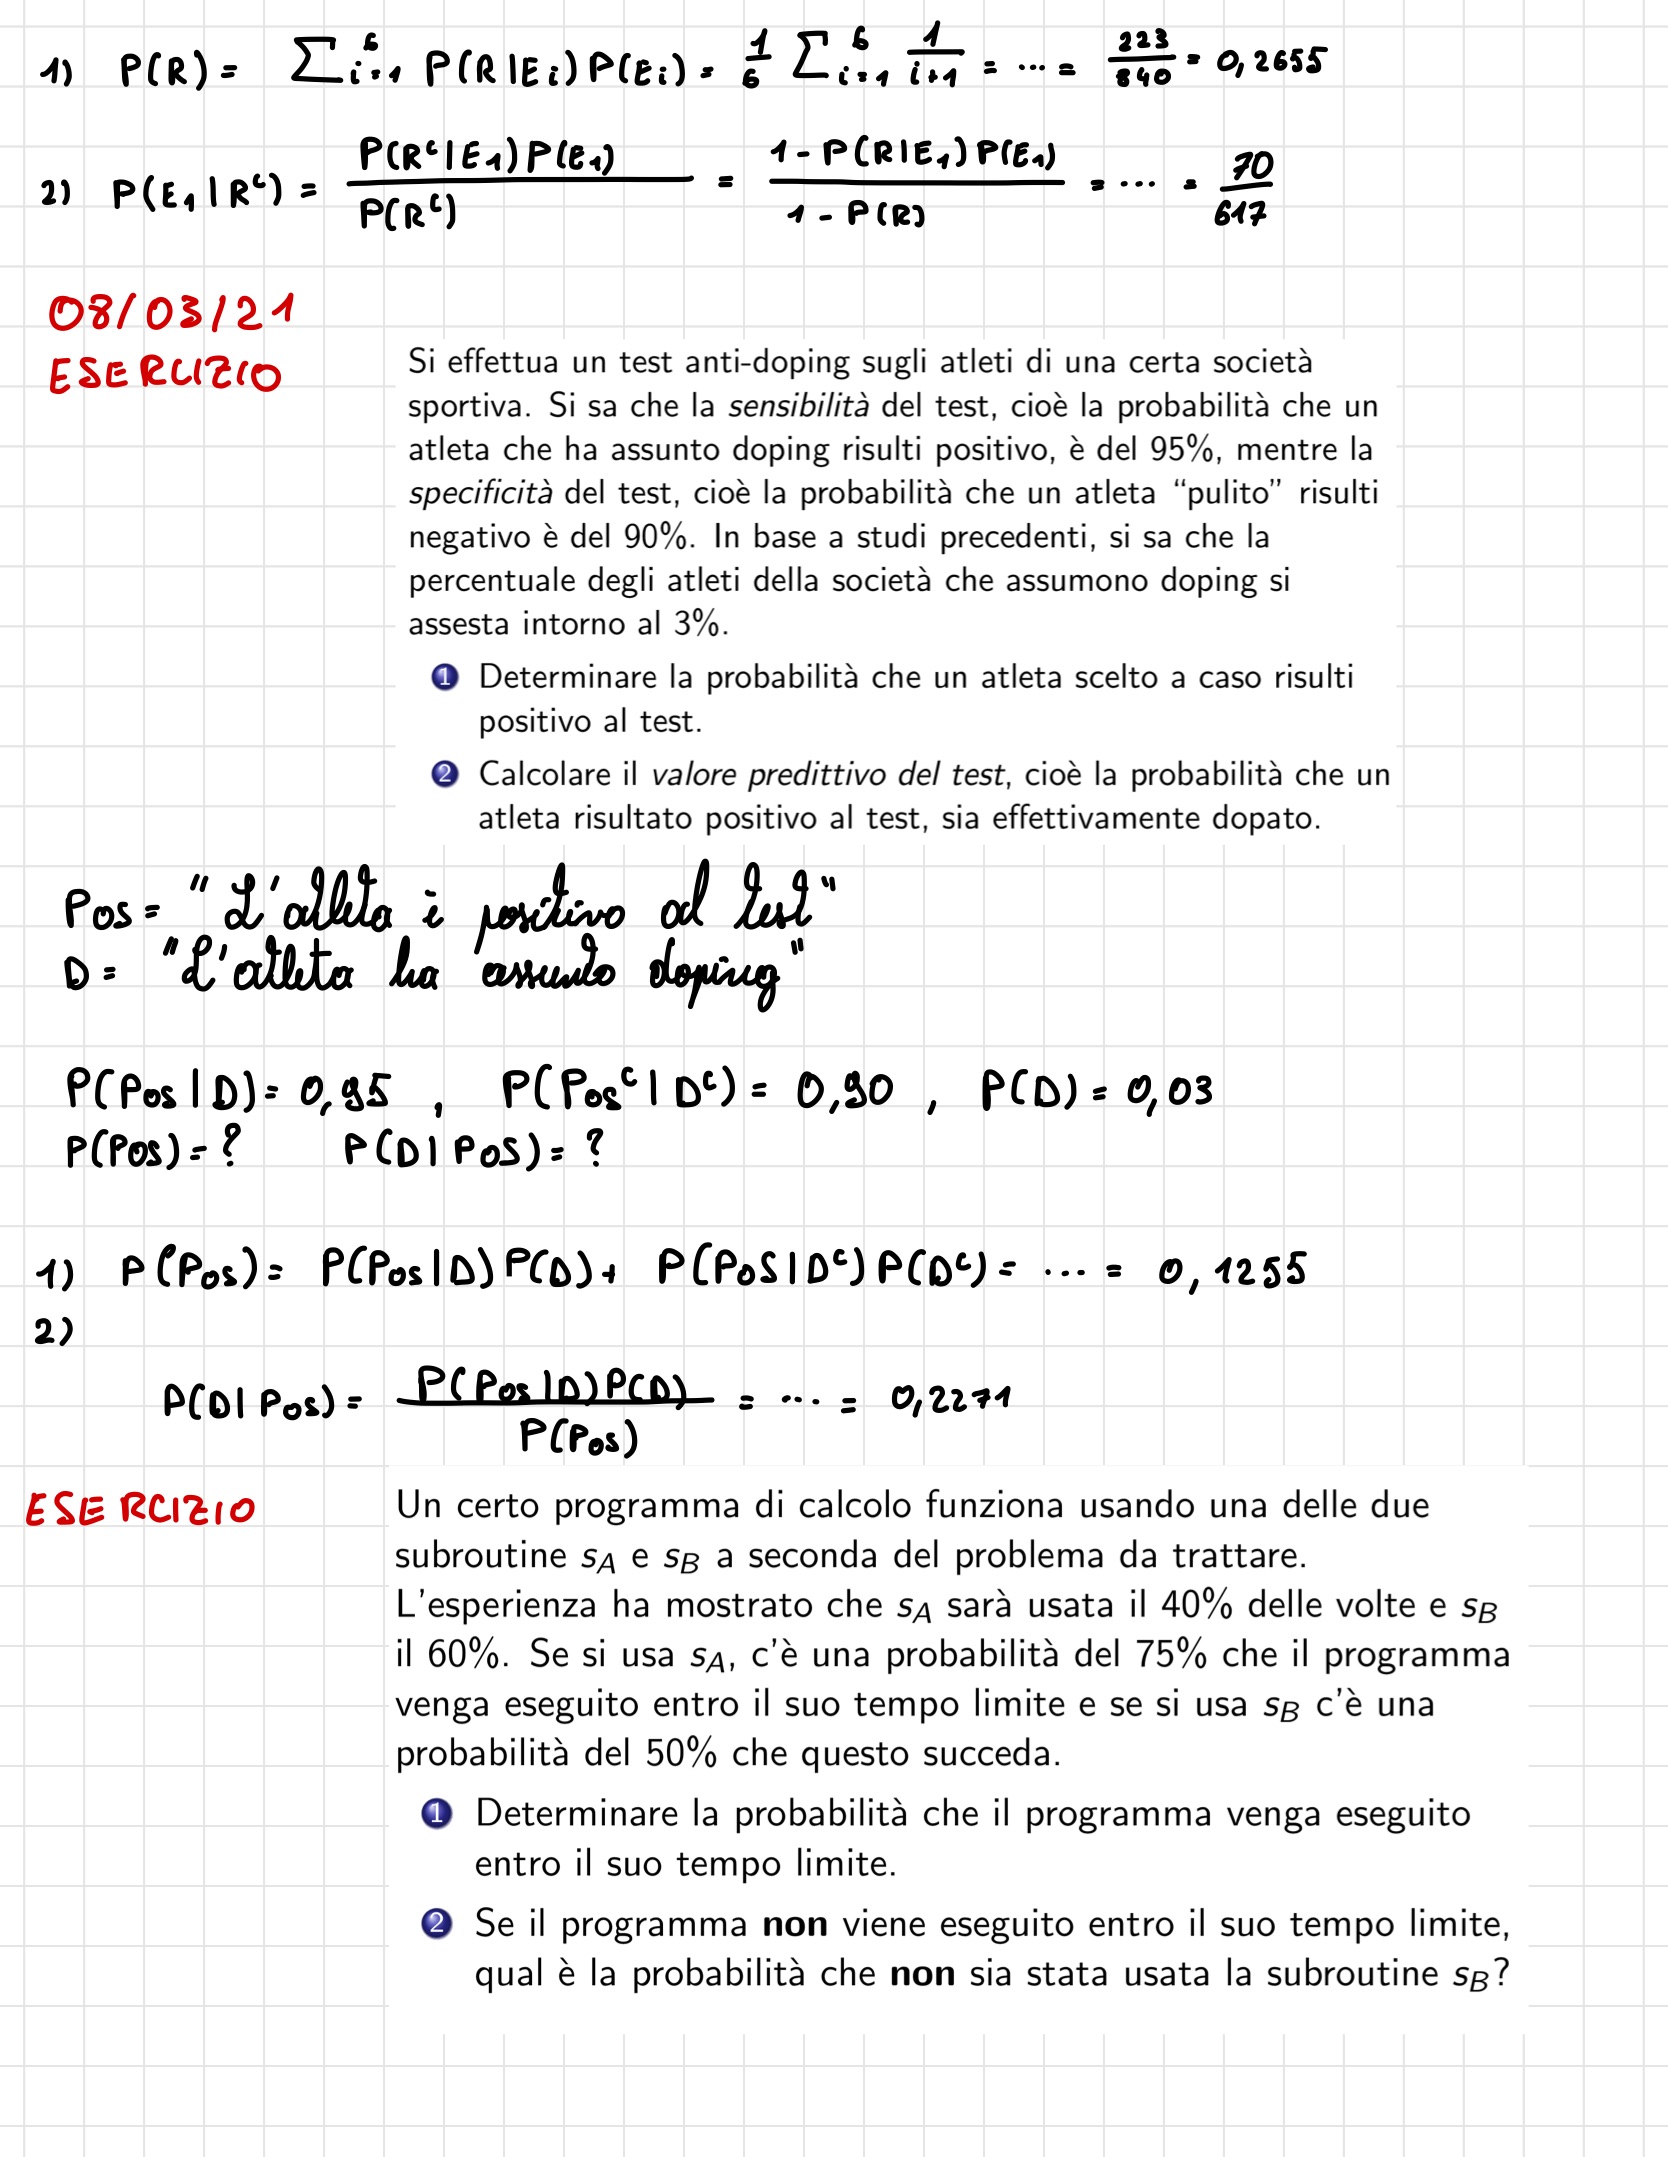 1) P(R) = ∑ᵢ₌₁⁶ P(R|Eᵢ) P(Eᵢ) = 1/6 ∑ᵢ₌₁⁶ 1/(i+1) = ... = 223/840 = 0,2655
2) P(E₁|Rᶜ) = P(Rᶜ|E₁) P(E₁) / P(Rᶜ) = 1 - P(R|E₁) P(E₁) / 1 - P(R) = ... = 70/617
08/03/21
ESERCIZIO
Si effettua un test anti-doping sugli atleti di una certa società
sportiva. Si sa che la sensibilità del test, cioè la probabilità che un
atleta che ha assunto doping risulti positivo, è del 95%, mentre la
specificità del test, cioè la probabilità che un atleta “pulito” risulti
negativo è del 90%. In base a studi precedenti, si sa che la
percentuale degli atleti della società che assumono doping si
assesta intorno al 3%.
1 Determinare la probabilità che un atleta scelto a caso risulti
positivo al test.
2 Calcolare il valore predittivo del test, cioè la probabilità che un
atleta risultato positivo al test, sia effettivamente dopato.
Pos = "L'atleta è positivo al test"
D = "L'atleta ha assunto doping"
P(Pos|D) = 0,95 , P(Posᶜ|Dᶜ) = 0,90 , P(D) = 0,03
P(Pos) = ? P(D|Pos) = ?
1) P(Pos) = P(Pos|D) P(D) + P(Pos|Dᶜ) P(Dᶜ) = ... = 0,1255
2)
P(D|Pos) = P(Pos|D) P(D) / P(Pos) = ... = 0,2271
ESERCIZIO
Un certo programma di calcolo funziona usando una delle due
subroutine s_A e s_B a seconda del problema da trattare.
L'esperienza ha mostrato che s_A sarà usata il 40% delle volte e s_B
il 60%. Se si usa s_A, c'è una probabilità del 75% che il programma
venga eseguito entro il suo tempo limite e se si usa s_B c'è una
probabilità del 50% che questo succeda.
1 Determinare la probabilità che il programma venga eseguito
entro il suo tempo limite.
2 Se il programma non viene eseguito entro il suo tempo limite,
qual è la probabilità che non sia stata usata la subroutine s_B?